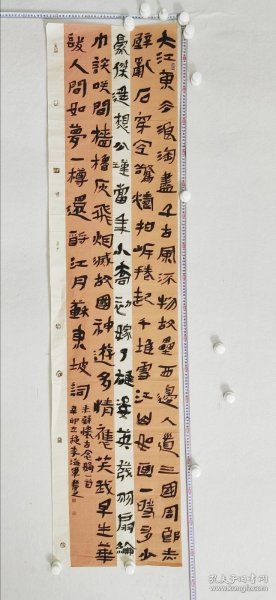 大江東去浪淘盡千古風流物故壘西邊人道三國周郎赤
壁亂石穿空驚濤拍岸捲起千堆雪江山如画一時多少
豪傑遥想公瑾當年小喬初嫁了雄姿英發羽扇綸
巾談笑間檣櫓灰飛烟滅故國神遊多情應笑我早生華
髮人間如夢一樽還酹江月蘇東坡詞
赤壁懷古念奴嬌一首
辛卯立秋李海
孔夫子旧书网